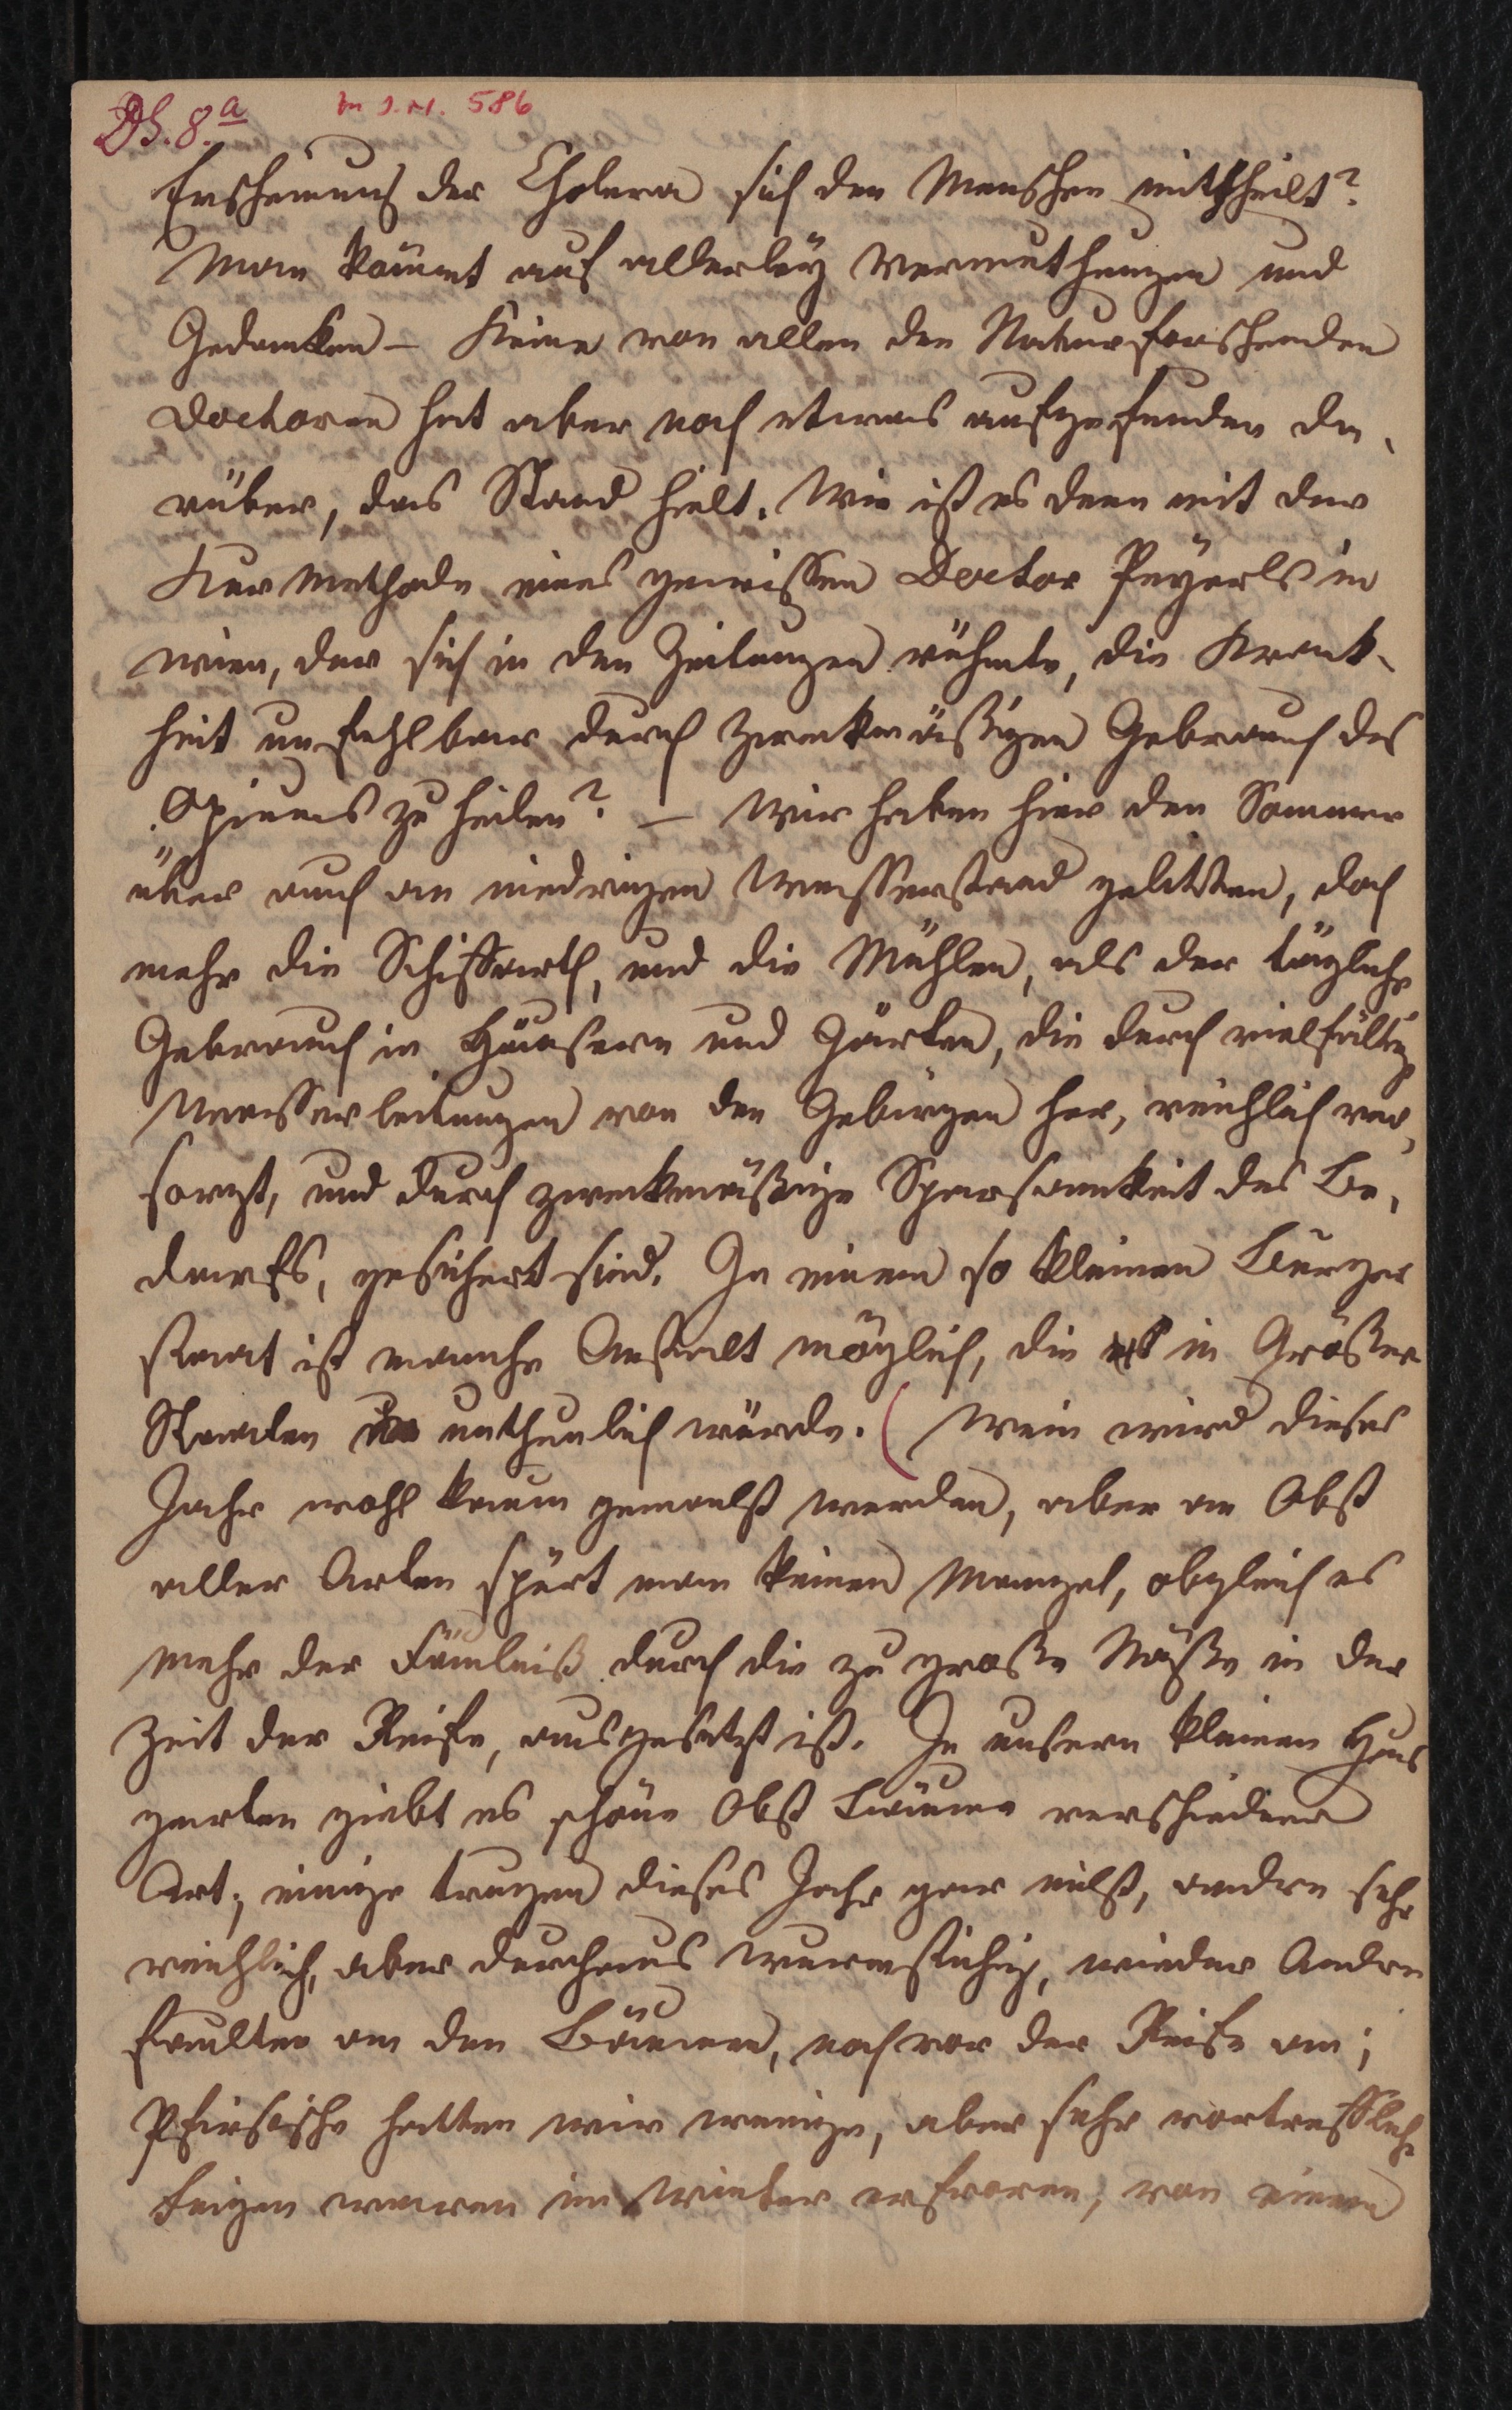 DS. 8.a
In J.N. 586
Erscheinung der Cholera sich den Menschen mittheilt?
Man kömmt auf allerley Vermuthungen und
Gedanken – Keine von allen den Naturforschenden
Doctoren hat aber noch etwas aufgefunden da-
rüber, das Stand hielt. Wie ist es denn mit der
Kur Methode eines gewissen Doctor Peyerls in
Wien, der sich in den Zeitungen rühmte, die Krank-
heit unfehlbar durch zwekmäßigen Gebrauch des
Opiums zu heilen? – Wir haben hier den Sommer
über auch an niedrigen Wasserstand gelitten, doch
mehr die Schiffarth, und die Mühlen, als der tägliche
Gebrauch in Häusern und Gärten, die durch vielfältige
Wasserleitungen von den Gebirgen her, reichlich ver-
sorgt, und durch zwekmäßige Sparsamkeit des Be-
darfs, gesichert sind. In einem so kleinen Bürger
staat ist manche Anstalt möglich, die in Größern
Staaten unthunlich würde. (Wein wird dieses
Jahr wohl kaum gemoulst werden, aber an Obst
aller Arten spürt man keinen Mangel, obgleich es
mehr der Fäulniß durch die zu große Näße in der
Zeit der Reife, ausgesetzt ist. In unserm kleinen Haus
garten giebt es schöne Obst Bäume verschiedner
Art; einige trugen dieses Jahr gar nichts, andre sehr
reichlich, aber durchaus wurmstichig, wieder Andre
faulten an den Bäumen, noch vor der Reife an;
Pfirsische hatten wir wenige, aber sehr vortreffliche
Feigen waren im Winter erfroren; von einem